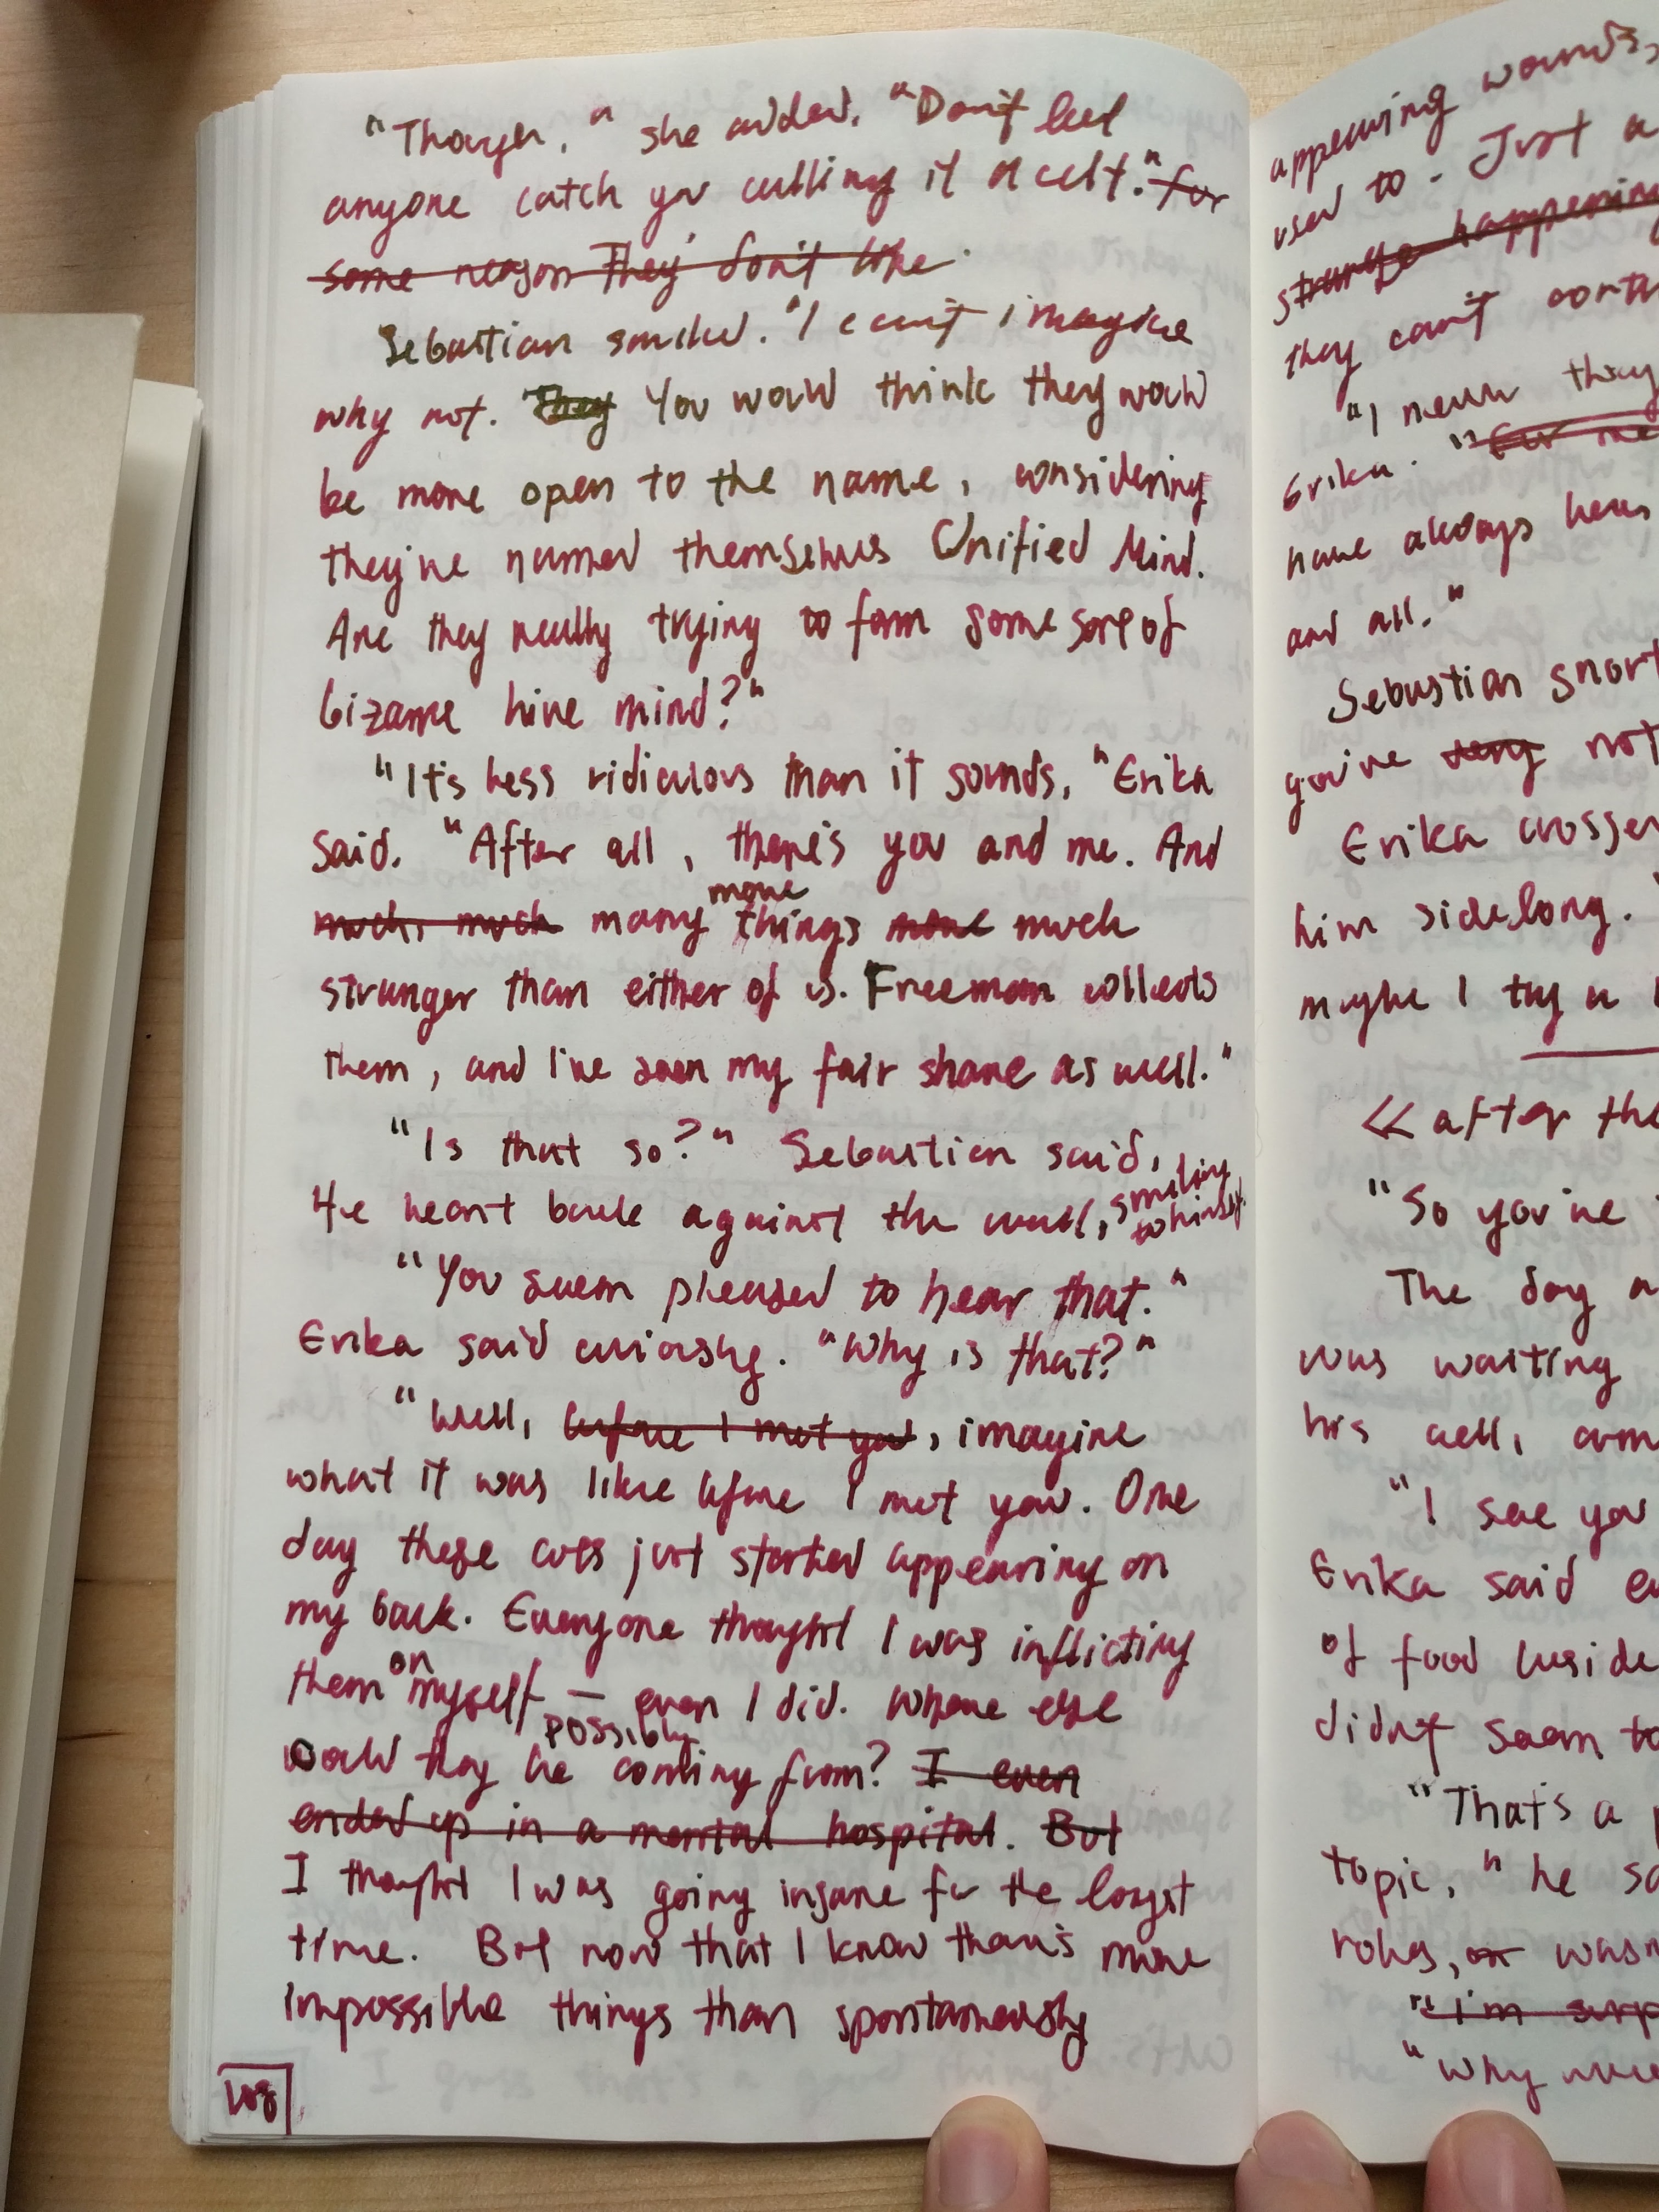 "Though," she added, "Don't let
anyone catch you calling it a cult." for
some reason They don't like
Sebastian smiled. "I can't imagine
why not. They You would think they would
be more open to the name, considering
they've named themselves Unified Mind.
Are they really trying to form some sort of
bizarre hive mind?"
"It's less ridiculous than it sounds," Erika
said. "After all, there's you and me. And
more
much, much many things more much
stranger than either of us. Freeman collects
them, and I've seen my fair share as well."
"Is that so?" Sebastian said,
He leant back against the wall, smiling
to himself.
"You seem pleased to hear that."
Erika said curiously. "Why is that?"
"Well, before I met you, imagine
what it was like before I met you. One
day these cuts just started appearing on
my back. Everyone thought I was inflicting
on
them myself — even I did. Where else
possibly
would they be coming from? I even
ended up in a mental hospital. But
I thought I was going insane for the longest
time. But now that I know there's more
impossible things than spontaneously
appearing wounds,
used to. Just a
strange happening
they can't
"I never
Erika. "For me
have always been
and all."
Sebastian snort
you've not
Erika crossed
him sidelong.
maybe I try a
<< after the
"So you've
The day a
was waiting
his cell, arm
"I see you
Erika said
of food beside
didn't seem to
"That's a
topic," he sa
robes, or wasn
"I'm surp
"Why